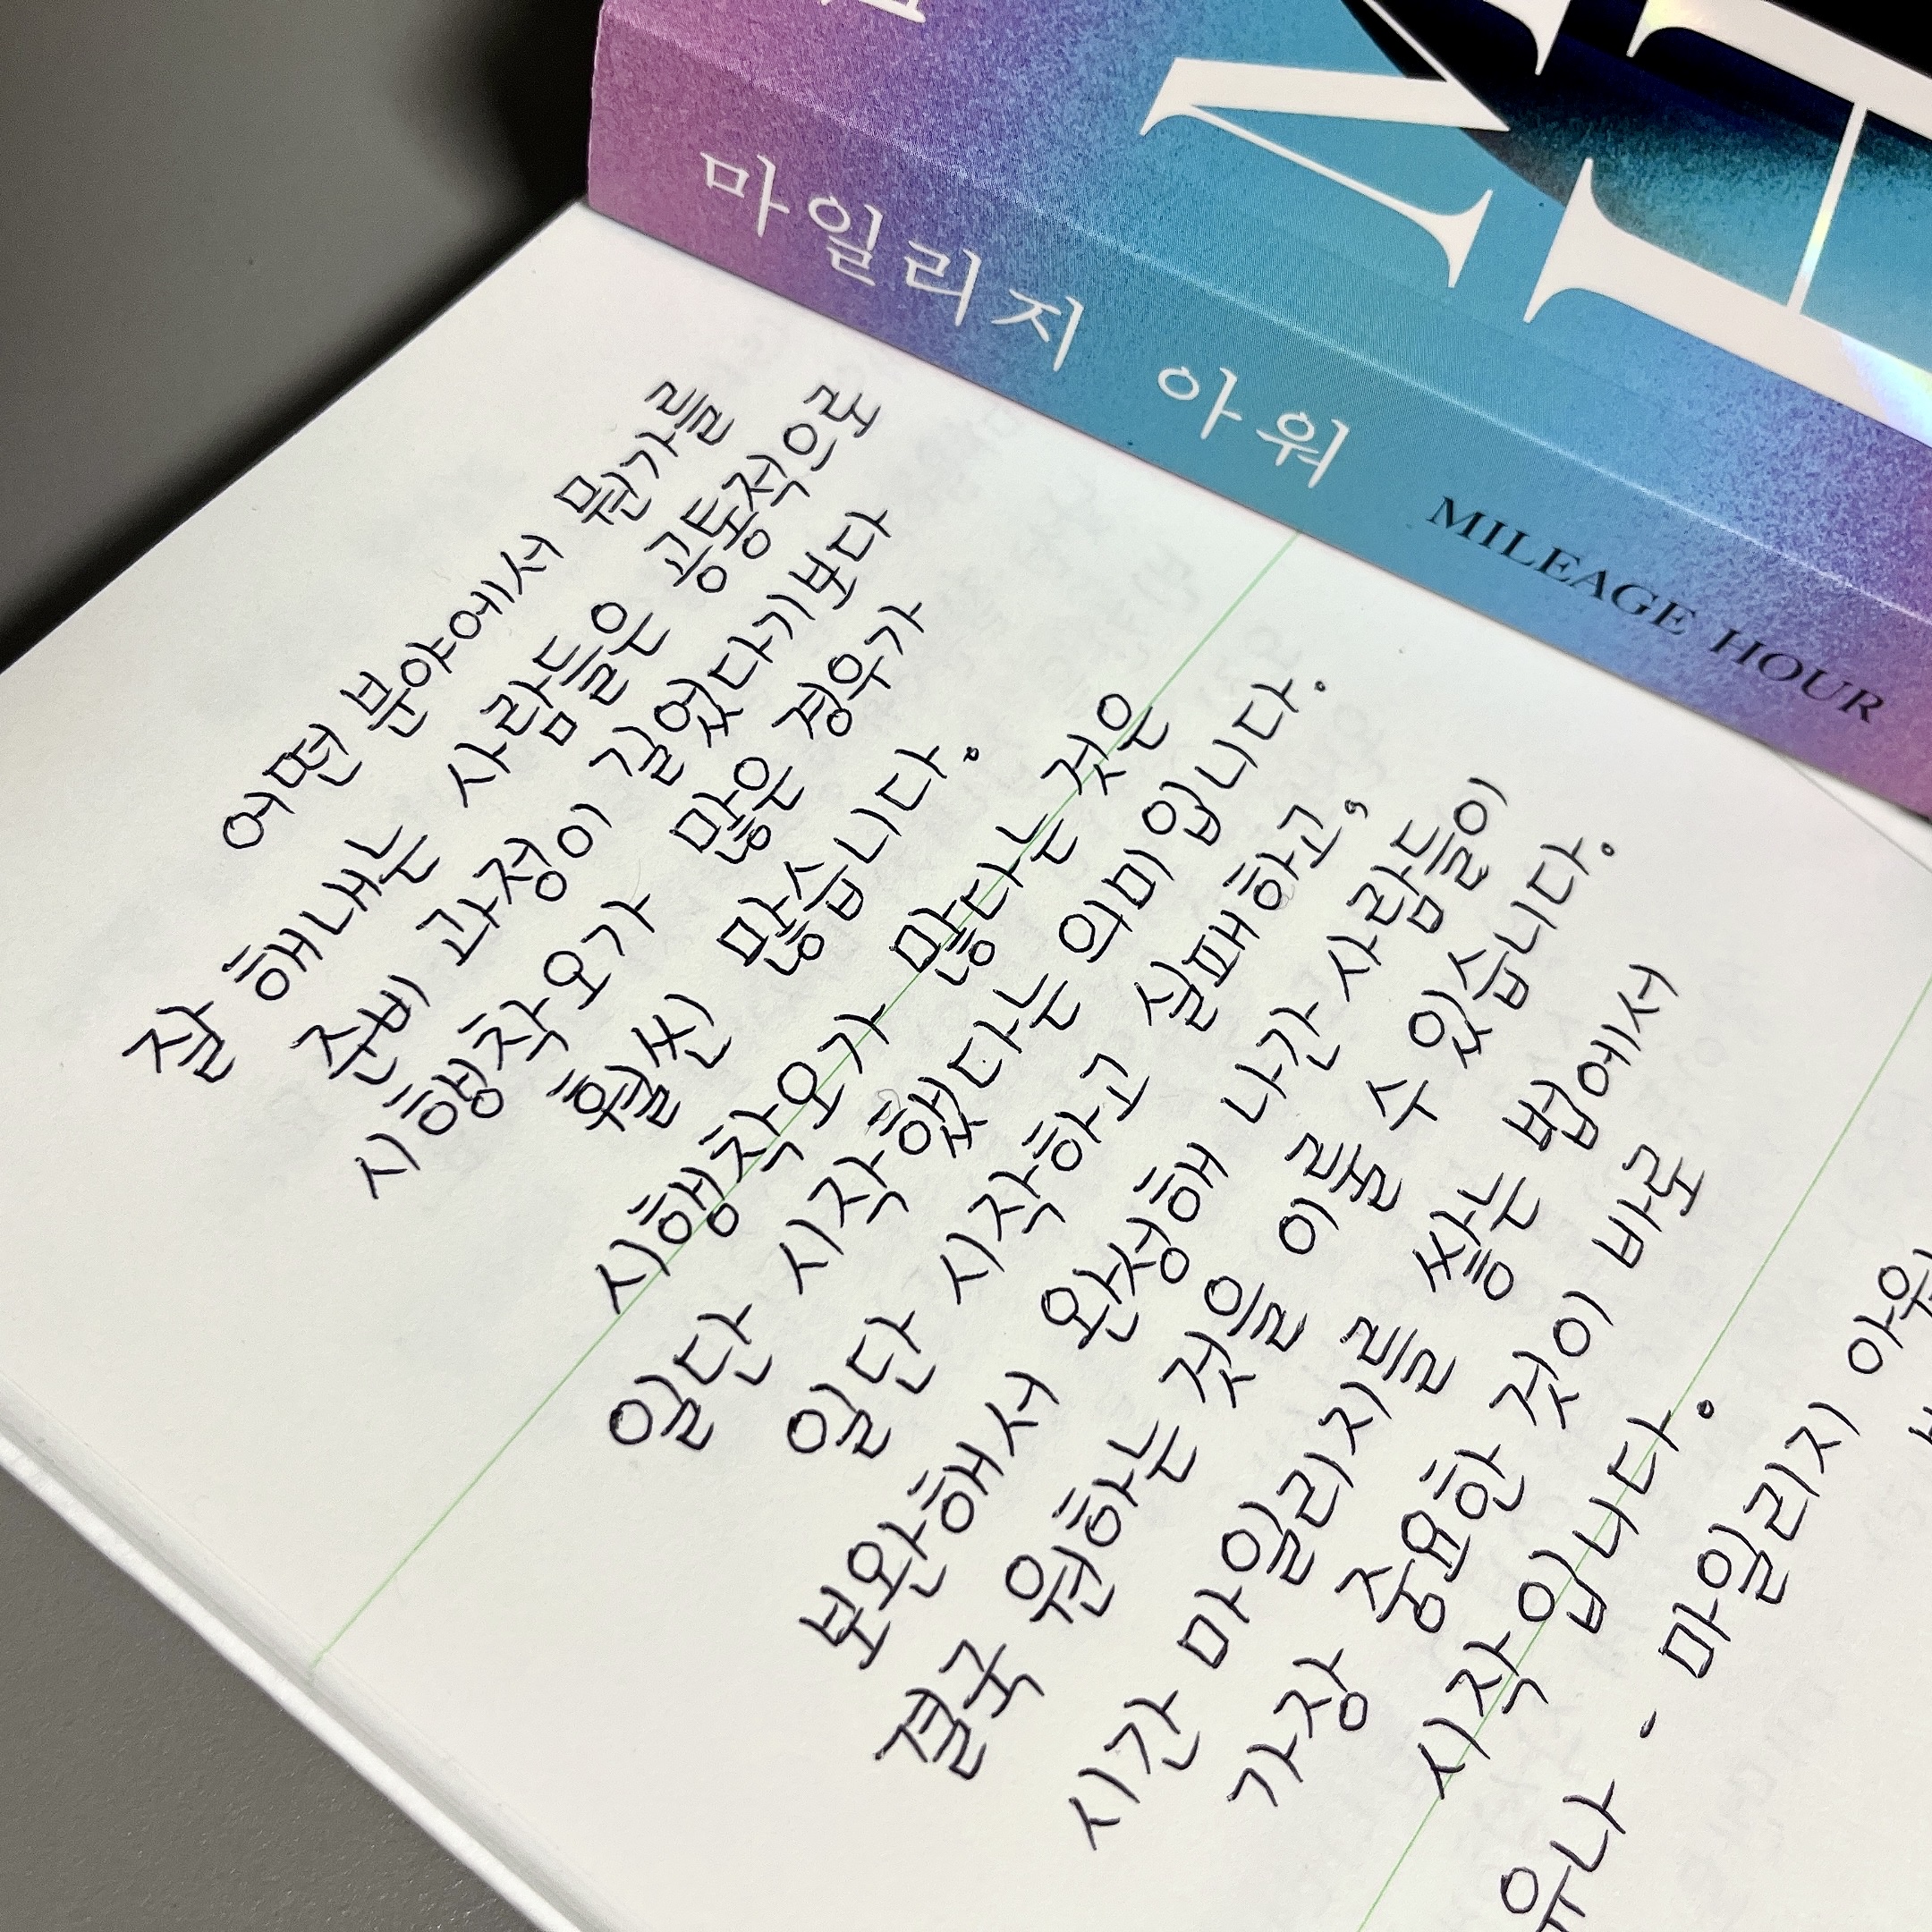 마일리지 아워
MILEAGE HOUR
어떤 분야에서 뭔가를
잘 해내는 사람들은 공통적으로
준비 과정이 길었다기보다
시행착오가 많은 경우가
훨씬 많습니다.
시행착오가 많다는 것은
일단 시작했다는 의미입니다.
일단 시작하고 실패하고,
보완해서 완성해 나간 사람들이
결국 원하는 것을 이룰 수 있습니다.
시간 마일리지를 쌓는 법에서
가장 중요한 것이 바로
시작입니다.
유나 - 마일리지 아워